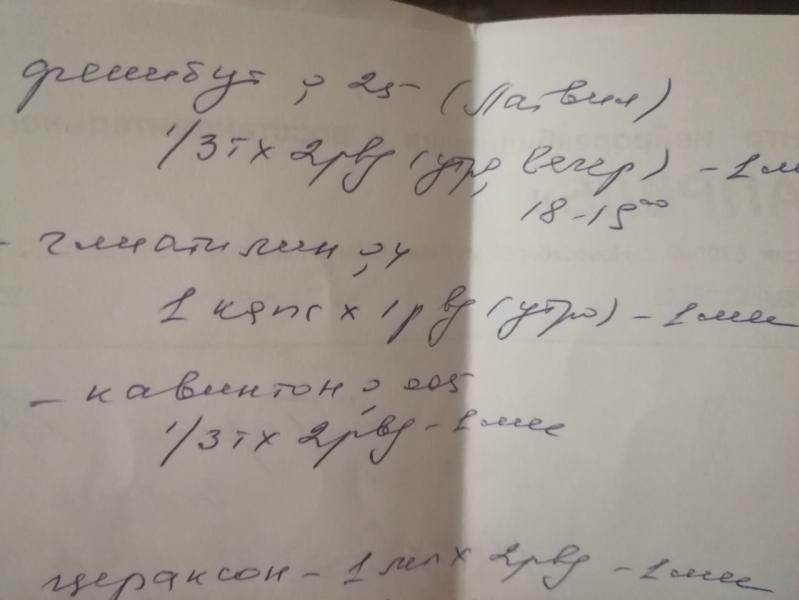 фенибут 0,25 (Латвия)
1/3 т х 2 рвд (утро, вечер) - 1 м
18-19⁰⁰
- глиатилин 0,4
1 капс х 1 рвд (утро) - 1 мес
- кавинтон 0,005
1/3 т х 2 рвд - 1 мес
цераксон - 1 мл х 2 рвд - 1 мес